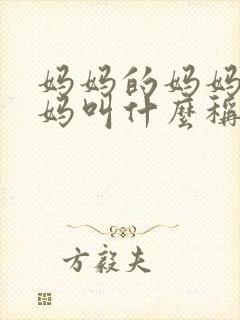 妈妈的妈妈
妈叫什麼稱
方毅夫